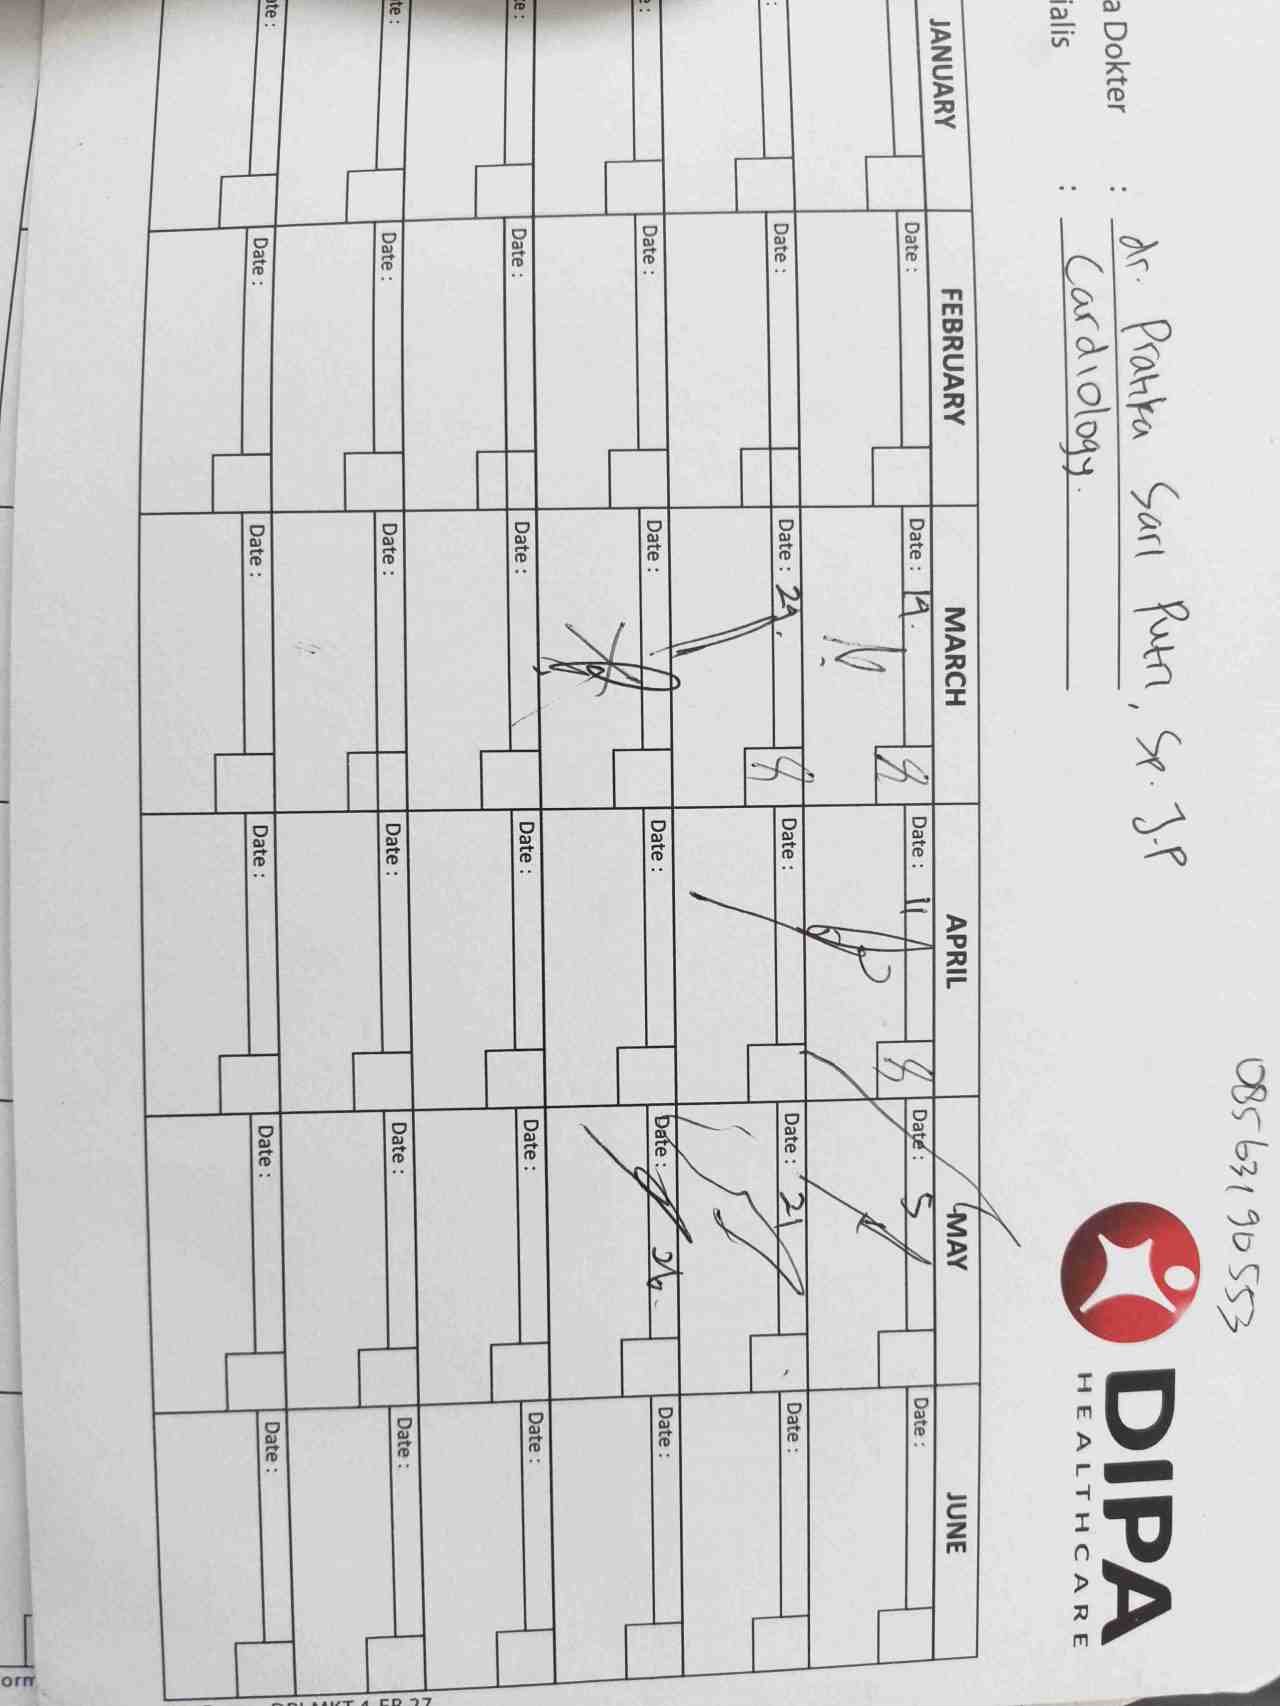 085 631 90 553
DIPA
HEALTHCARE
a Dokter : dr. Pratika Sari Putri, Sp. J.P
ialis : Cardiology.
JANUARY FEBRUARY MARCH APRIL MAY JUNE
Date : Date : 19. Date : 11 Date : 5 Date :
te : Date : Date : 29. Date : Date : 21 Date :
te : Date : Date : Date : Date : 26. Date :
te : Date : Date : Date : Date : Date :
te : Date : Date : Date : Date : Date :
te : Date : Date : Date : Date : Date :